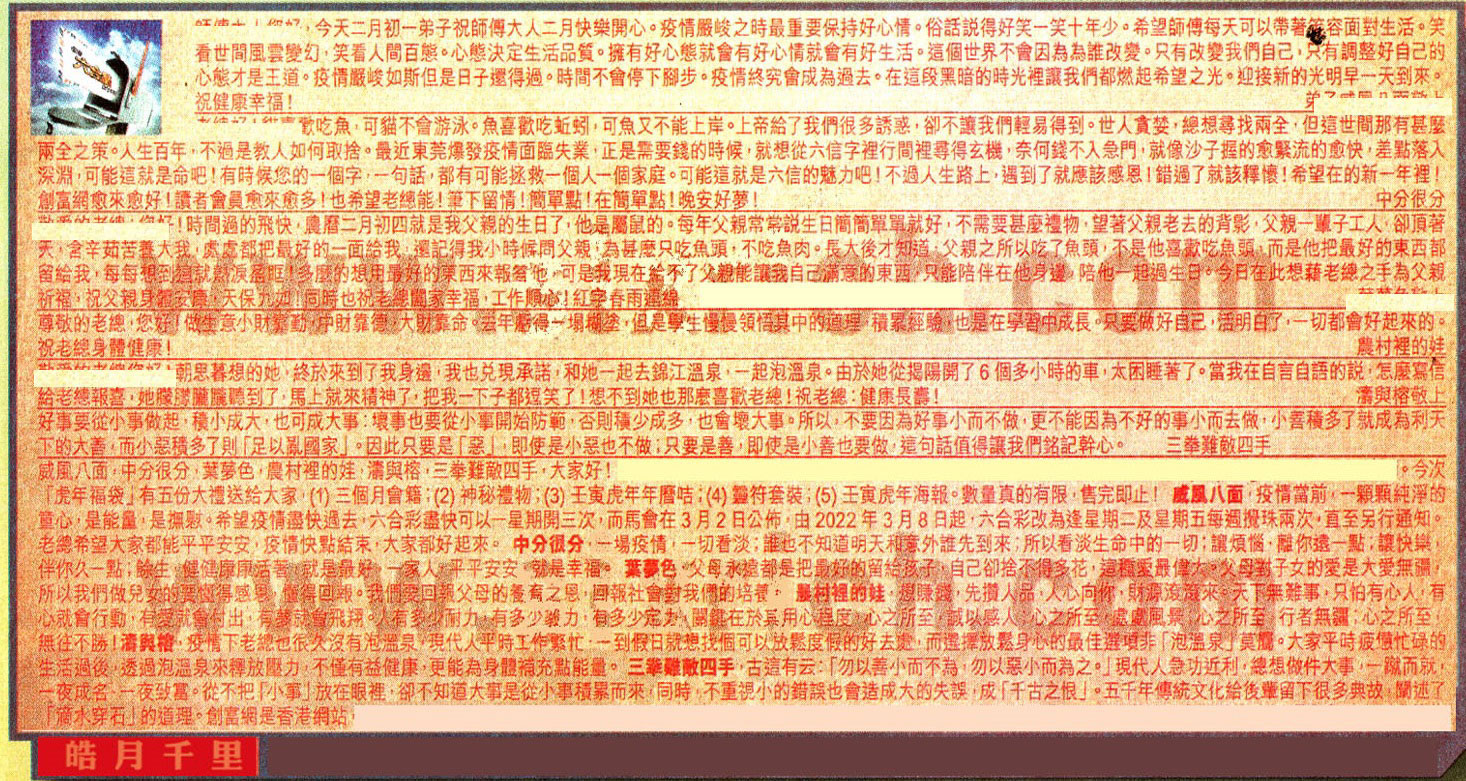 今天二月初一弟子祝師傅大人二月快樂開心。疫情嚴峻之時最重要保持好心情。俗話說得好笑一笑十年少。希望師傅每天可以帶著笑容面對生活。笑
看世間風雲變幻，笑看人間百態。心態決定生活品質。擁有好心態就會有好心情就會有好生活。這個世界不會因為為誰改變。只有改變我們自己，只有調整好自己的
心態才是王道。疫情嚴峻如斯但是日子還得過。時間不會停下腳步。疫情終究會成為過去。在這段黑暗的時光裡讓我們都燃起希望之光。迎接新的光明早一天到來。
祝健康幸福！
歡吃魚，可貓不會游泳。魚喜歡吃蚯蚓，可魚又不能上岸。上帝給了我們很多誘惑，卻不讓我們輕易得到。世人貪婪，總想尋找兩全，但這世間那有甚麼
兩全之策。人生百年，不過是教人如何取捨。最近東莞爆發疫情面臨失業，正是需要錢的時候，就想從六信字裡行間裡尋得玄機，奈何錢不入急門，就像沙子握的愈緊流的愈快，差點落入
深淵，可能這就是命吧！有時候您的一個字，一句話，都有可能拯救一個人一個家庭。可能這就是六信的魅力吧！不過人生路上，遇到了就應該感恩！錯過了就該釋懷！希望在的新一年裡！
創富網愈來愈好！讀者會員愈來愈多！也希望老總能！筆下留情！簡單點！在簡單點！晚安好夢！ 中分很分
！時間過的飛快，農曆二月初四就是我父親的生日了，他是屬鼠的。每年父親常常說生日簡簡單單就好，不需要甚麼禮物，望著父親老去的背影，父親一輩子工人，卻頂著
天，含辛茹苦養大我，處處都把最好的一面給我，還記得我小時候問父親，為甚麼只吃魚頭，不吃魚肉。長大後才知道，父親之所以吃了魚頭，不是他喜歡吃魚頭，而是他把最好的東西都
留給我，每每想到這就就淚盈眶！多麼的想用最好的東西來報答他，可是我現在給不了父親能讓我自己滿意的東西，只能陪伴在他身邊，陪他一起過生日。今日在此想藉老總之手為父親
祈福，祝父親身體安康，天保九如！同時也祝老總闔家幸福，工作順心！紅字春雨連綿
尊敬的老總，您好！做生意小財靠勤，中財靠德，大財靠命。去年虧得一塌糊塗，但是學生慢慢領悟其中的道理，積累經驗，也是在學習中成長。只要做好自己，活明白了，一切都會好起來的。
祝老總身體健康！ 農村裡的娃
朝思暮想的她，終於來到了我身邊，我也兌現承諾，和她一起去錦江溫泉，一起泡溫泉。由於她從揭陽開了6個多小時的車，太困睡著了。當我在自言自語的說，怎麼寫信
給老總報喜，她朦朦朧朧聽到了，馬上就來精神了，把我一下子都逗笑了！想不到她也那麼喜歡老總！祝老總：健康長壽！ 濤與榕敬上
好事要從小事做起，積小成大，也可成大事；壞事也要從小事開始防範，否則積少成多，也會壞大事。所以，不要因為好事小而不做，更不能因為不好的事小而去做，小善積多了就成為利天
下的大善，而小惡積多了則「足以亂國家」。因此只要是「惡」，即使是小惡也不做；只要是善，即使是小善也要做，這句話值得讓我們銘記幹心。 三拳難敵四手
威風八面，中分很分，葉夢色，農村裡的娃，濤與榕，三拳難敵四手，大家好！ 。今次
「虎年福袋」有五份大禮送給大家，(1) 三個月會籍；(2) 神秘禮物；(3) 壬寅虎年年曆咭；(4) 靈符套裝；(5) 壬寅虎年海報。數量真的有限，售完即止！ 威風八面，疫情當前，一顆顆純淨的
童心，是能量，是撫慰。希望疫情盡快過去，六合彩盡快可以一星期開三次，而馬會在3月2日公佈，由2022年3月8日起，六合彩改為逢星期二及星期五每週攪珠兩次，直至另行通知。
老總希望大家都能平平安安，疫情快點結束，大家都好起來。 中分很分，一場疫情，一切看淡；誰也不知道明天和意外誰先到來；所以看淡生命中的一切；讓煩惱，離你遠一點；讓快樂，
伴你久一點；餘生，健健康康活著，就是最好，一家人，平平安安，就是幸福。 葉夢色，父母永遠都是把最好的留給孩子，自己卻捨不得多花，這種愛最偉大。父母對子女的愛是大愛無疆，
所以我們做兒女的要懂得感恩，懂得回報。我們要回報父母的養育之恩，回報社會對我們的培養。 農村裡的娃，想賺錢，先攢人品，人心向你，財源滾滾來。天下無難事，只怕有心人，有
心就會行動，有愛就會付出，有夢就會飛翔。人有多少耐力，有多少毅力，有多少定力，關鍵在於真用心程度，心之所至，誠以感人；心之所至，處處風景，心之所至，行者無疆；心之所至，
無往不勝！濤與榕，疫情下老總也很久沒有泡溫泉，現代人平時工作繁忙，一到假日就想找個可以放鬆度假的好去處，而選擇放鬆身心的最佳選項非「泡溫泉」莫屬。大家平時疲憊忙碌的
生活過後，透過泡溫泉來釋放壓力，不僅有益健康，更能為身體補充點能量。 三拳難敵四手，古這有云：「勿以善小而不為，勿以惡小而為之。」現代人急功近利，總想做件大事，一蹴而就，
一夜成名，一夜致富。從不把「小事」放在眼裡，卻不知道大事是從小事積累而來，同時，不重視小的錯誤也會造成大的失誤，成「千古之恨」。五千年傳統文化給後輩留下很多典故，闡述了
「滴水穿石」的道理。創富網是香港網站
皓月千里